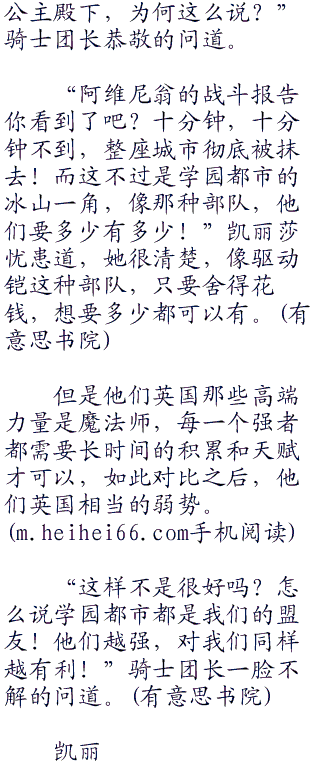 公主殿下，为何这么说？”
骑士团长恭敬的问道。
“阿维尼翁的战斗报告
你看到了吧？十分钟，十分
钟不到，整座城市彻底被抹
去！而这不过是学园都市的
冰山一角，像那种部队，他
们要多少有多少！”凯丽莎
忧患道，她很清楚，像驱动
铠这种部队，只要舍得花
钱，想要多少都可以有。(有
意思书院)
但是他们英国那些高端
力量是魔法师，每一个强者
都需要长时间的积累和天赋
才可以，如此对比之后，他
们英国相当的弱势。
(m.heihei66.com手机阅读)
“这样不是很好吗？怎
么说学园都市都是我们的盟
友！他们越强，对我们同样
越有利！”骑士团长一脸不
解的问道。(有意思书院)
凯丽